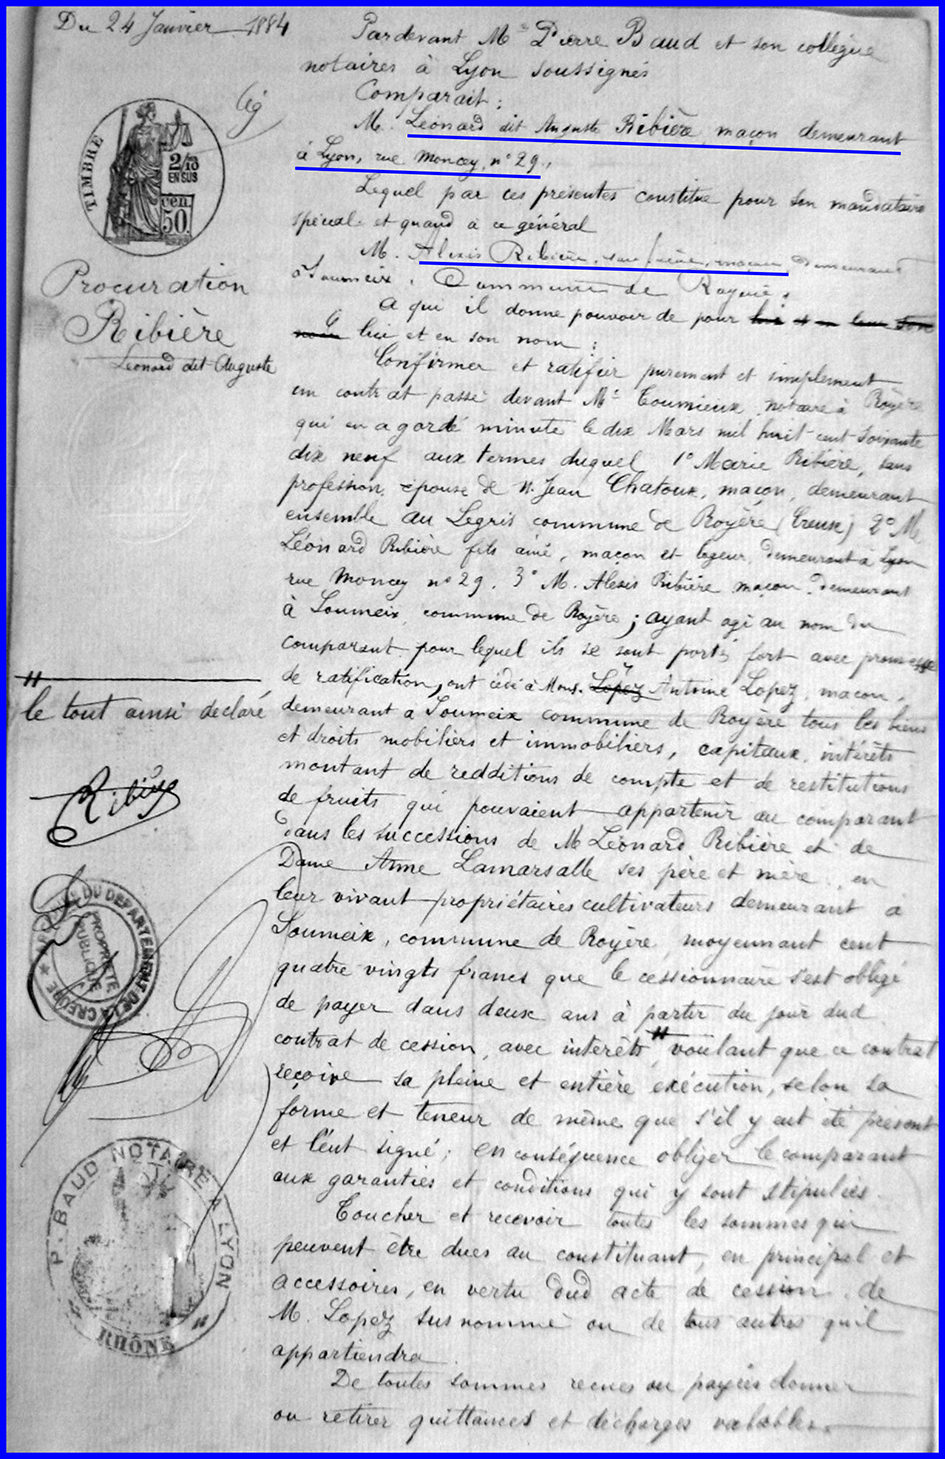 Du 24 Janvier 1884
Pardevant Me Pierre Baud et son collègue
notaires à Lyon soussignés
Comparait :
M. Léonard dit Auguste Ribière, maçon demeurant
à Lyon, rue Moncey, n° 29.,
Lequel par ces présentes constitue pour son mandataire
spécial et quand à ce général
M. Alexis Ribière, son frère, maçon demeurant
à Soumeix, Commune de Royère,
A qui il donne pouvoir de pour
lui et en son nom :
Confirmer et ratifier purement et simplement
un contrat passé devant Me Toumieux, notaire à Royère
qui en a gardé minute le dix Mars mil huit cent soixante
dix neuf aux termes duquel 1° Marie Ribière, sans
profession, épouse de M. Jean Chatoux, maçon, demeurant
ensemble au Legris commune de Royère (Creuse) 2° M.
Léonard Ribière fils ainé, maçon et logeur demeurant à Lyon
rue Moncey n° 29. 3° M. Alexis Ribière maçon, demeurant
à Soumeix, commune de Royère ; ayant agi au nom du
comparant pour lequel ils se sont portés fort avec promesse
de ratification, ont cédé à Mons. Lopez Antoine Lopez, maçon,
demeurant à Soumeix commune de Royère tous les biens
et droits mobiliers et immobiliers, capitaux, intérêts
montant de redditions de compte et de restitutions
de fruits qui pouvaient appartenir au comparant
dans les successions de M Léonard Ribière et de
Dame Anne Lamarsalle ses père et mère, en
leur vivant propriétaires cultivateurs demeurant à
Soumeix, commune de Royère, moyennant cent
quatre vingts francs que le cessionnaire s'est obligé
de payer dans deux ans à partir du jour dud
contrat de cession, avec intérêts " voulant que ce contrat
reçoive sa pleine et entière exécution, selon sa
forme et teneur de même que s'il y eut été présent
et l'eut signé ; en conséquence obliger le comparant
aux garanties et conditions qui y sont stipulées.
Toucher et recevoir toutes les sommes qui
peuvent être dues au constituant, en principal et
accessoires, en vertu dud acte de cession, de
M. Lopez sus nommé ou de tous autres qu'il
appartiendra
De toutes sommes reçues ou payées donner
ou retirer quittances et décharges valables.
TIMBRE
2/10
EN SUS
50
cen
Procuration
Ribière
Léonard dit Auguste
"
le tout ainsi déclaré
Ribière
DU DEPARTEMENT DE LA CREUSE
PROPRIETE
PUBLIQUE
P. BAUD NOTAIRE A LYON
RHÔNE